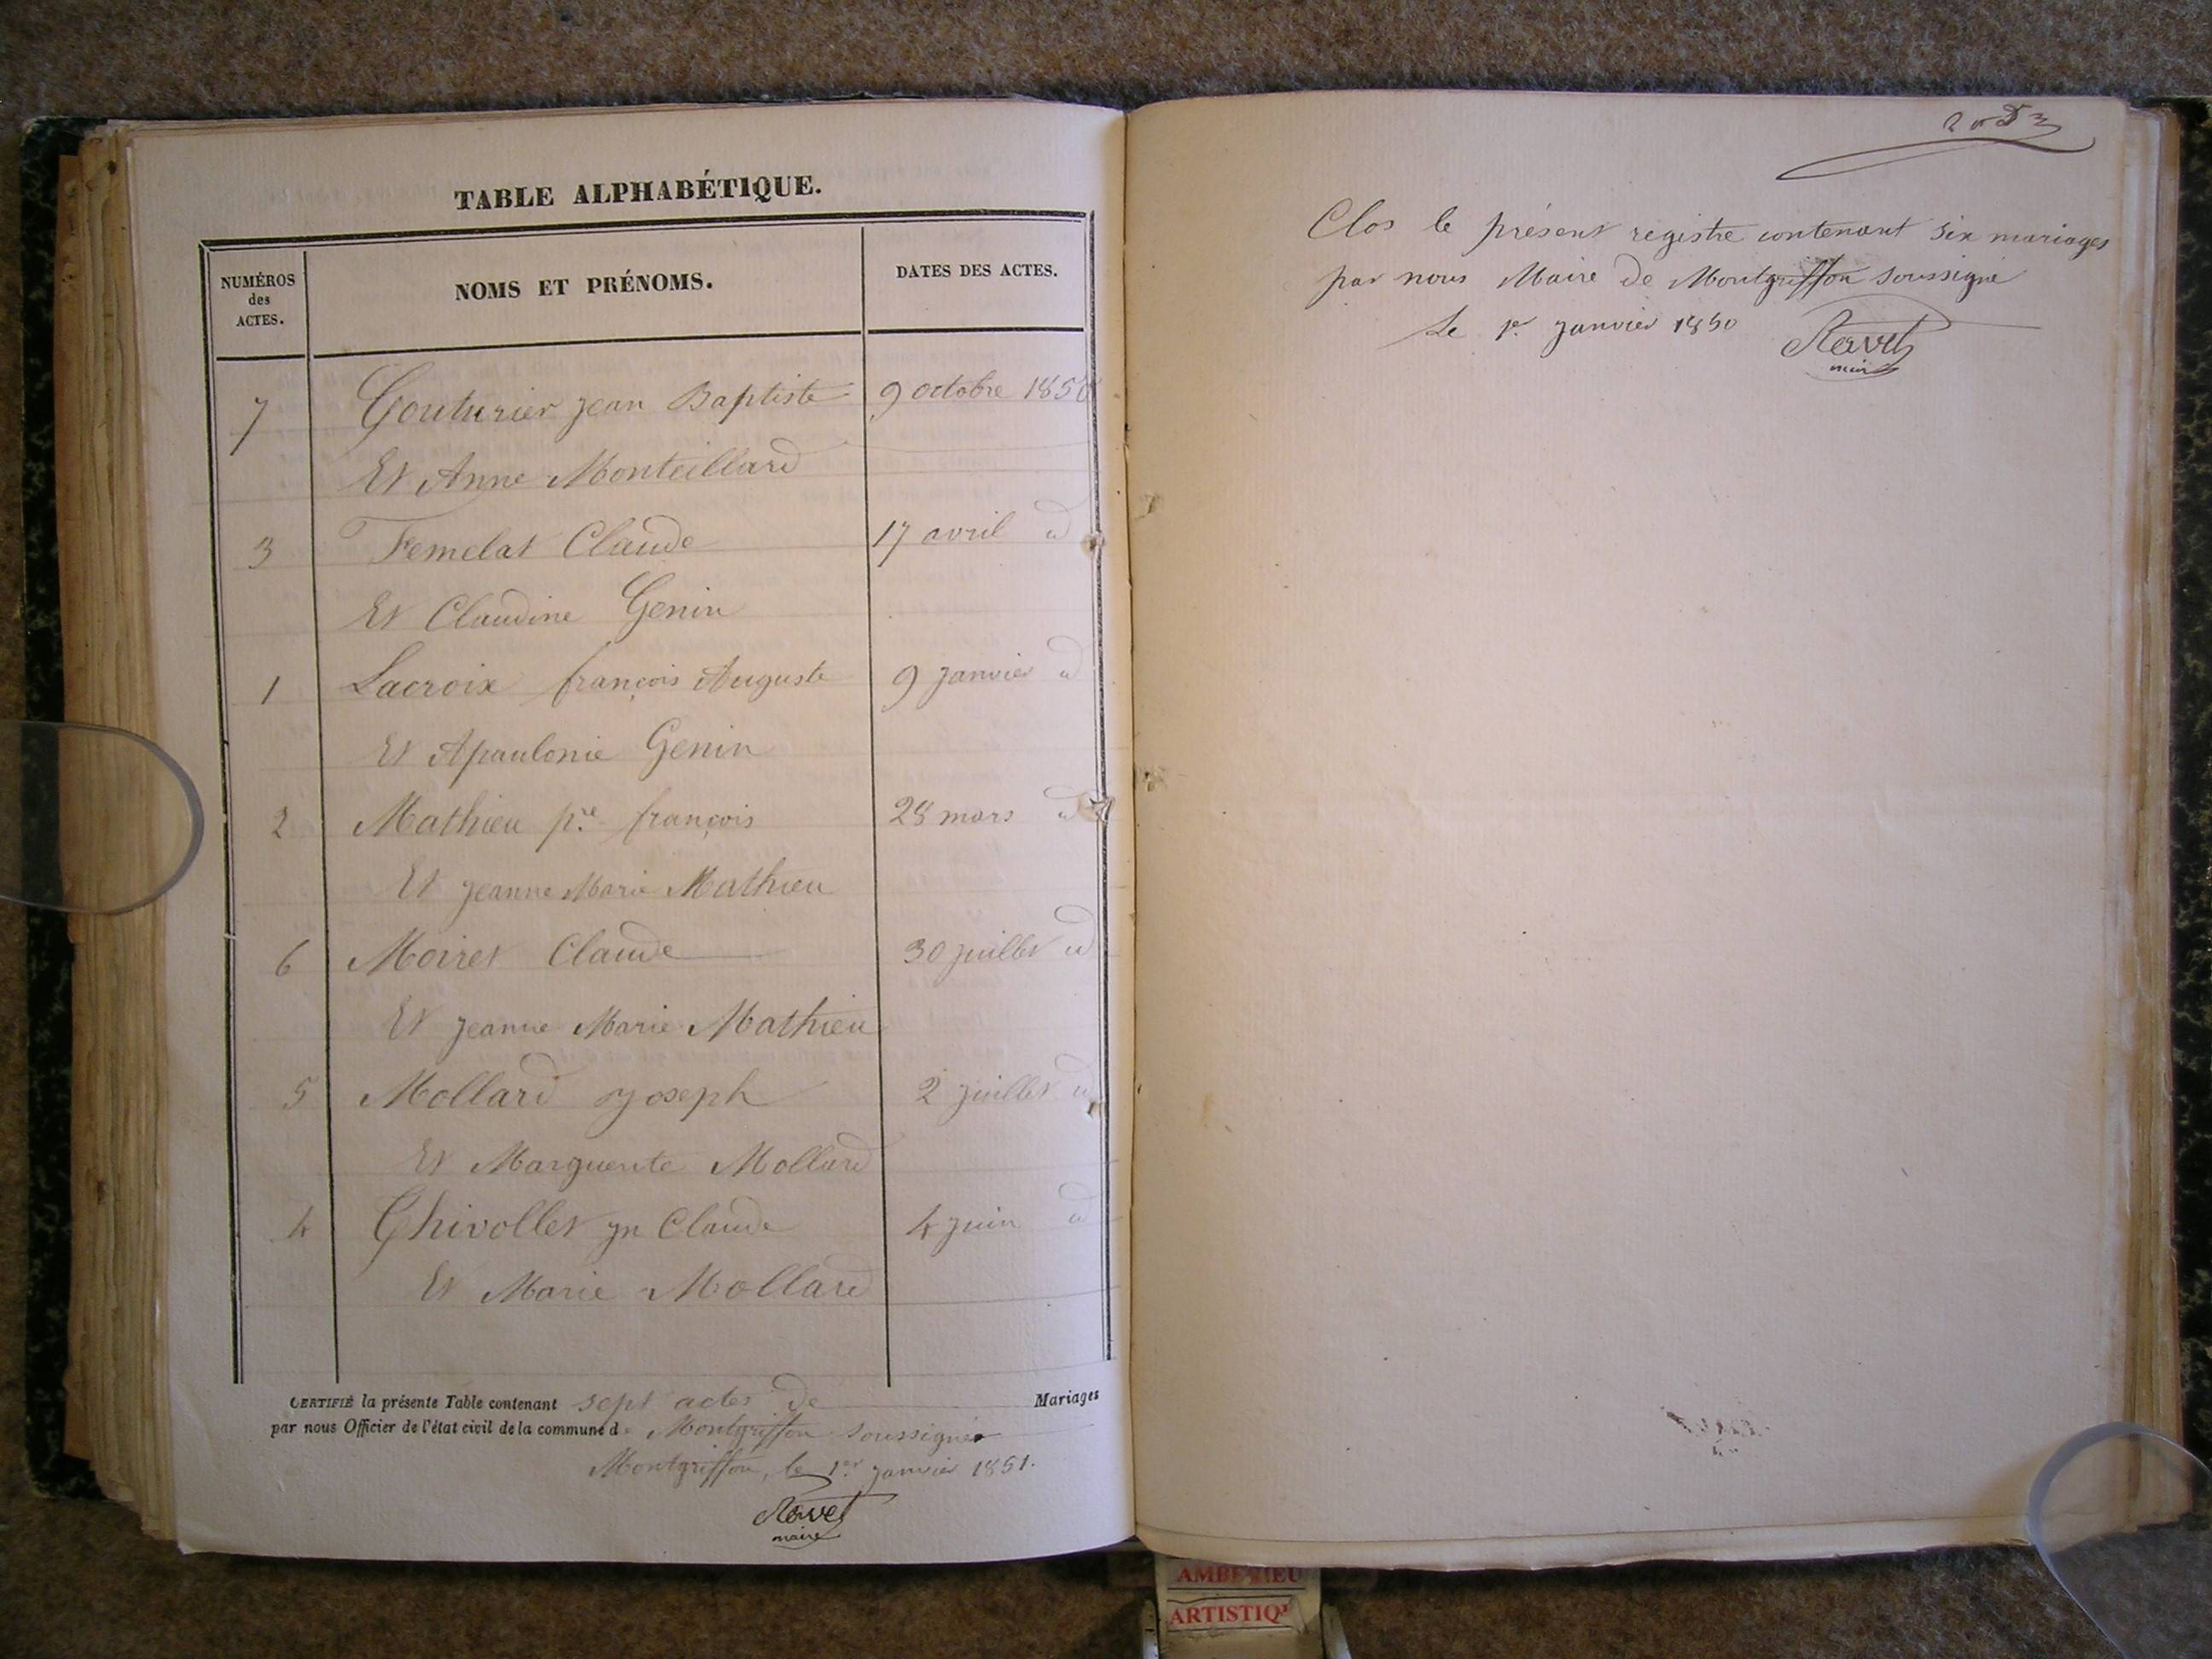 TABLE ALPHABÉTIQUE.
NUMÉROS des ACTES.
NOMS ET PRÉNOMS.
DATES DES ACTES.
7 Couturier jean Baptiste 9 octobre 1850
Et Anne Monteillard
3 Femelat Claude 17 avril id
Et Claudine Genin
1 Lacroix françois Auguste 9 janvier id
Et Apaulonie Genin
2 Mathieu pre françois 28 mars id
Et jeanne Marie Mathieu
6 Moiret Claude 30 juillet id
Et jeanne Marie Mathieu
5 Mollard joseph 2 juillet id
Et Marguerite Mollard
4 Chivollet jn Claude 4 juin id
Et Marie Mollard
CERTIFIÉ la présente Table contenant sept actes de Mariages
par nous Officier de l'état civil de la commune d Montgriffon soussigné
Montgriffon, le 1er janvier 1851.
Ravet
maire
Clos le présent registre contenant six mariages
par nous Maire de Montgriffon soussigné
Le 1er janvier 1850
Ravet
maire
AMBERIEU
ARTISTIQ